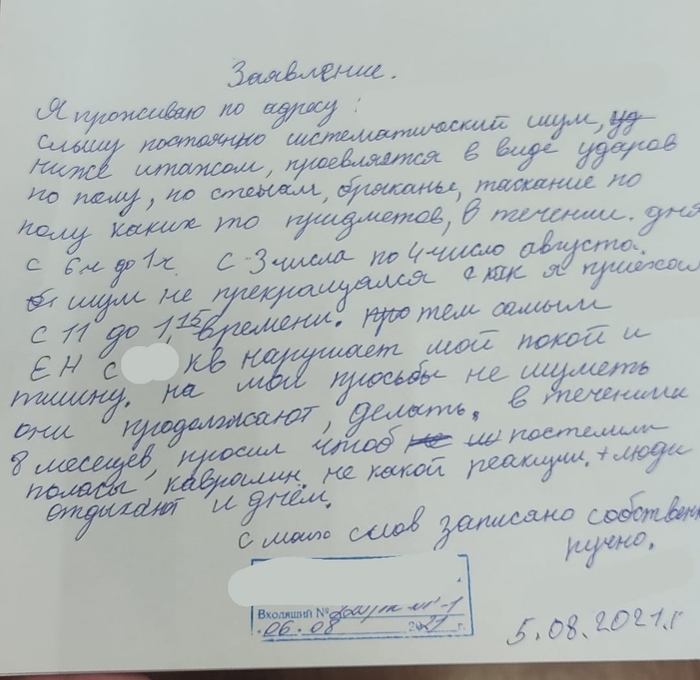 Заявление.
Я проживаю по адресу :
слышу постоянно систематический шум,
ниже итажом, проевляется в виде ударов
по полу, по стенам, бряканье, таскание по
полу каких то придметов, в течении. дня
с 6ч до 1ч. с 3 числа по 4 число августа.
шум не прекращался с как я приехал
с 11 до 1,15 времени. тем самым
ЕН с кв нарушает мой покой и
тишину. на мои прозьбы не шуметь
они продолжают, делать. в течении
8 месецев, просил чтоб постелили
поласы, кавралин. не какой реакции. + люди
отдыхают и днём.
с моих слов записано собственно
ручно.
Входящий №
06.08 2021 г.
5.08.2021.г